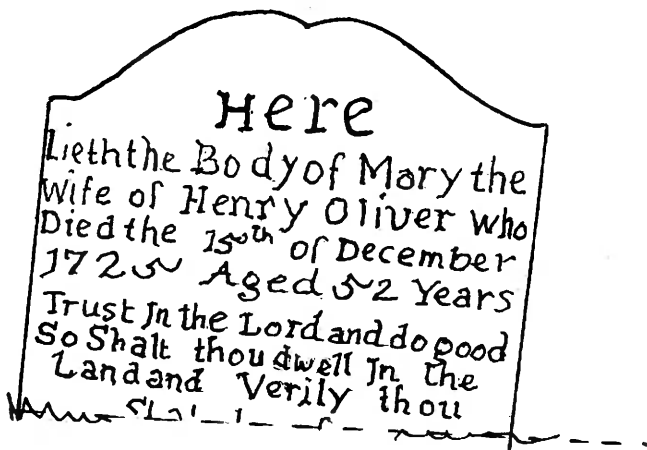 Here
Lieth the Body of Mary the
Wife of Henry Oliver Who
Died the 15th of December
1725 Aged 52 Years
Trust In the Lord and do good
So Shalt thou dwell In the
Land and Verily thou